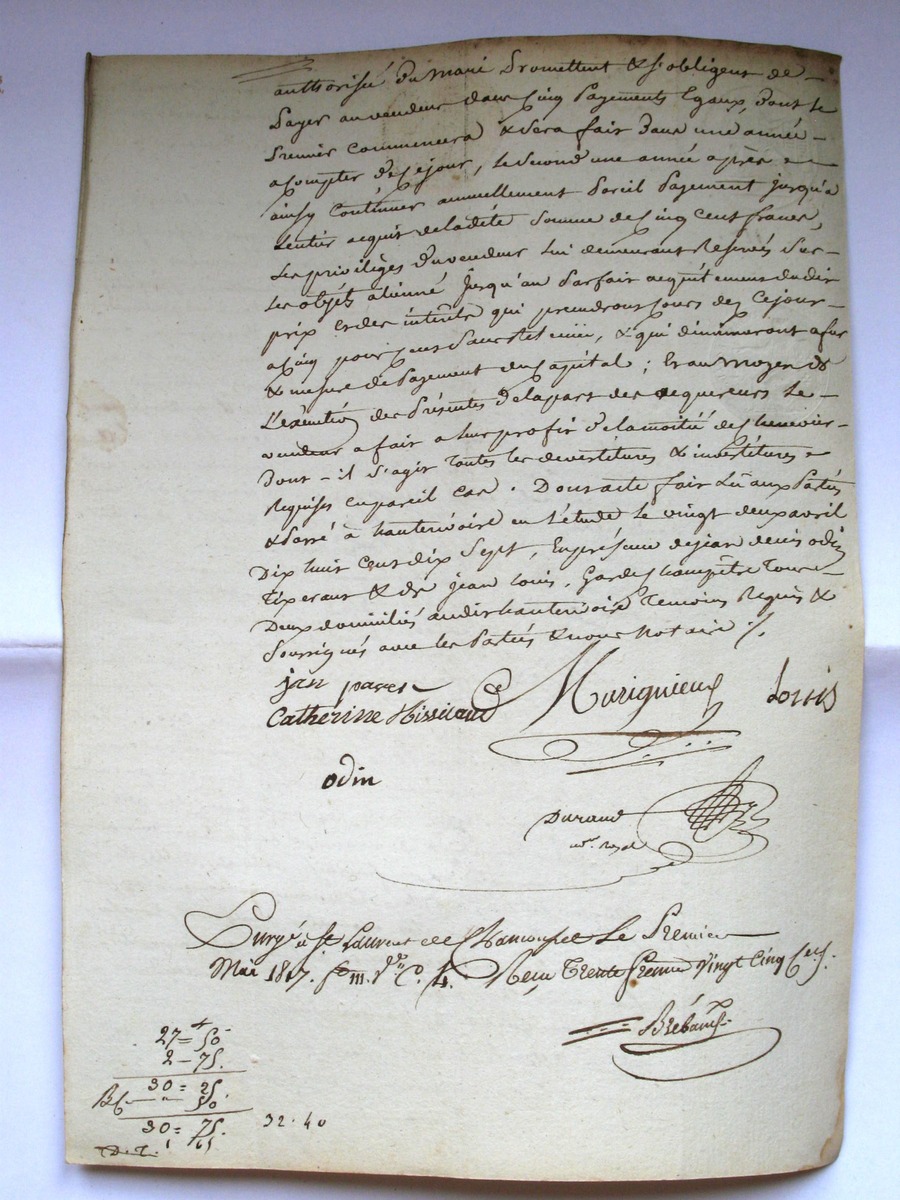 authorisée du mari Promettent & s'obligent de
Payer au vendeur dans Cinq Payements Egaux, dont le
Premier Commencera & Sera fait Dans une année
a Compter de Ce jour, le Second une année après &
ainsy Continuer annuellement Pareil Payement jusqu'a
Lentier acquit de ladite Somme de Cinq Cent francs,
Les privilèges du vendeur Lui demeurant Reservés Sur
Les objets aliené jusqu'au Parfait acquitement dudit
prix Et des interêts qui prendront Cours dez Ce jour
a Cinq pour Cent Sans Retenue, & qui diminueront a fur
& mesure de Payement du Capital ; Et au Moyen de
L'exécution des Présentes de la part des acquereurs Le
vendeur a fait a leur profit de la moitié de Chenevier
Dont il s'agit Toutes les devestitures & investitures
Requises en pareil Cas. Dont acte fait Lû aux Parties
& Passé à hauterivoire en L'étude Le vingt deux avril
Dix huit Cent dix Sept, En présence de jean denis odin
Tixerant & de jean Louis, Garde Champêtre Tous
Deux domiciliés audit hauterivoire Temoins Requis &
Soussignés avec les Parties & nous Notaire ./.
Murignieux Louis
Catherine
odin
Durand
Nre. Royal
à St. Laurent de Chamousset Le Premier
Mai 1817. Reçu Trente francs Vingt Cinq Ces.
27 = 50
2 - 75.
30 = 25
50
30 = 75.
32 . 40